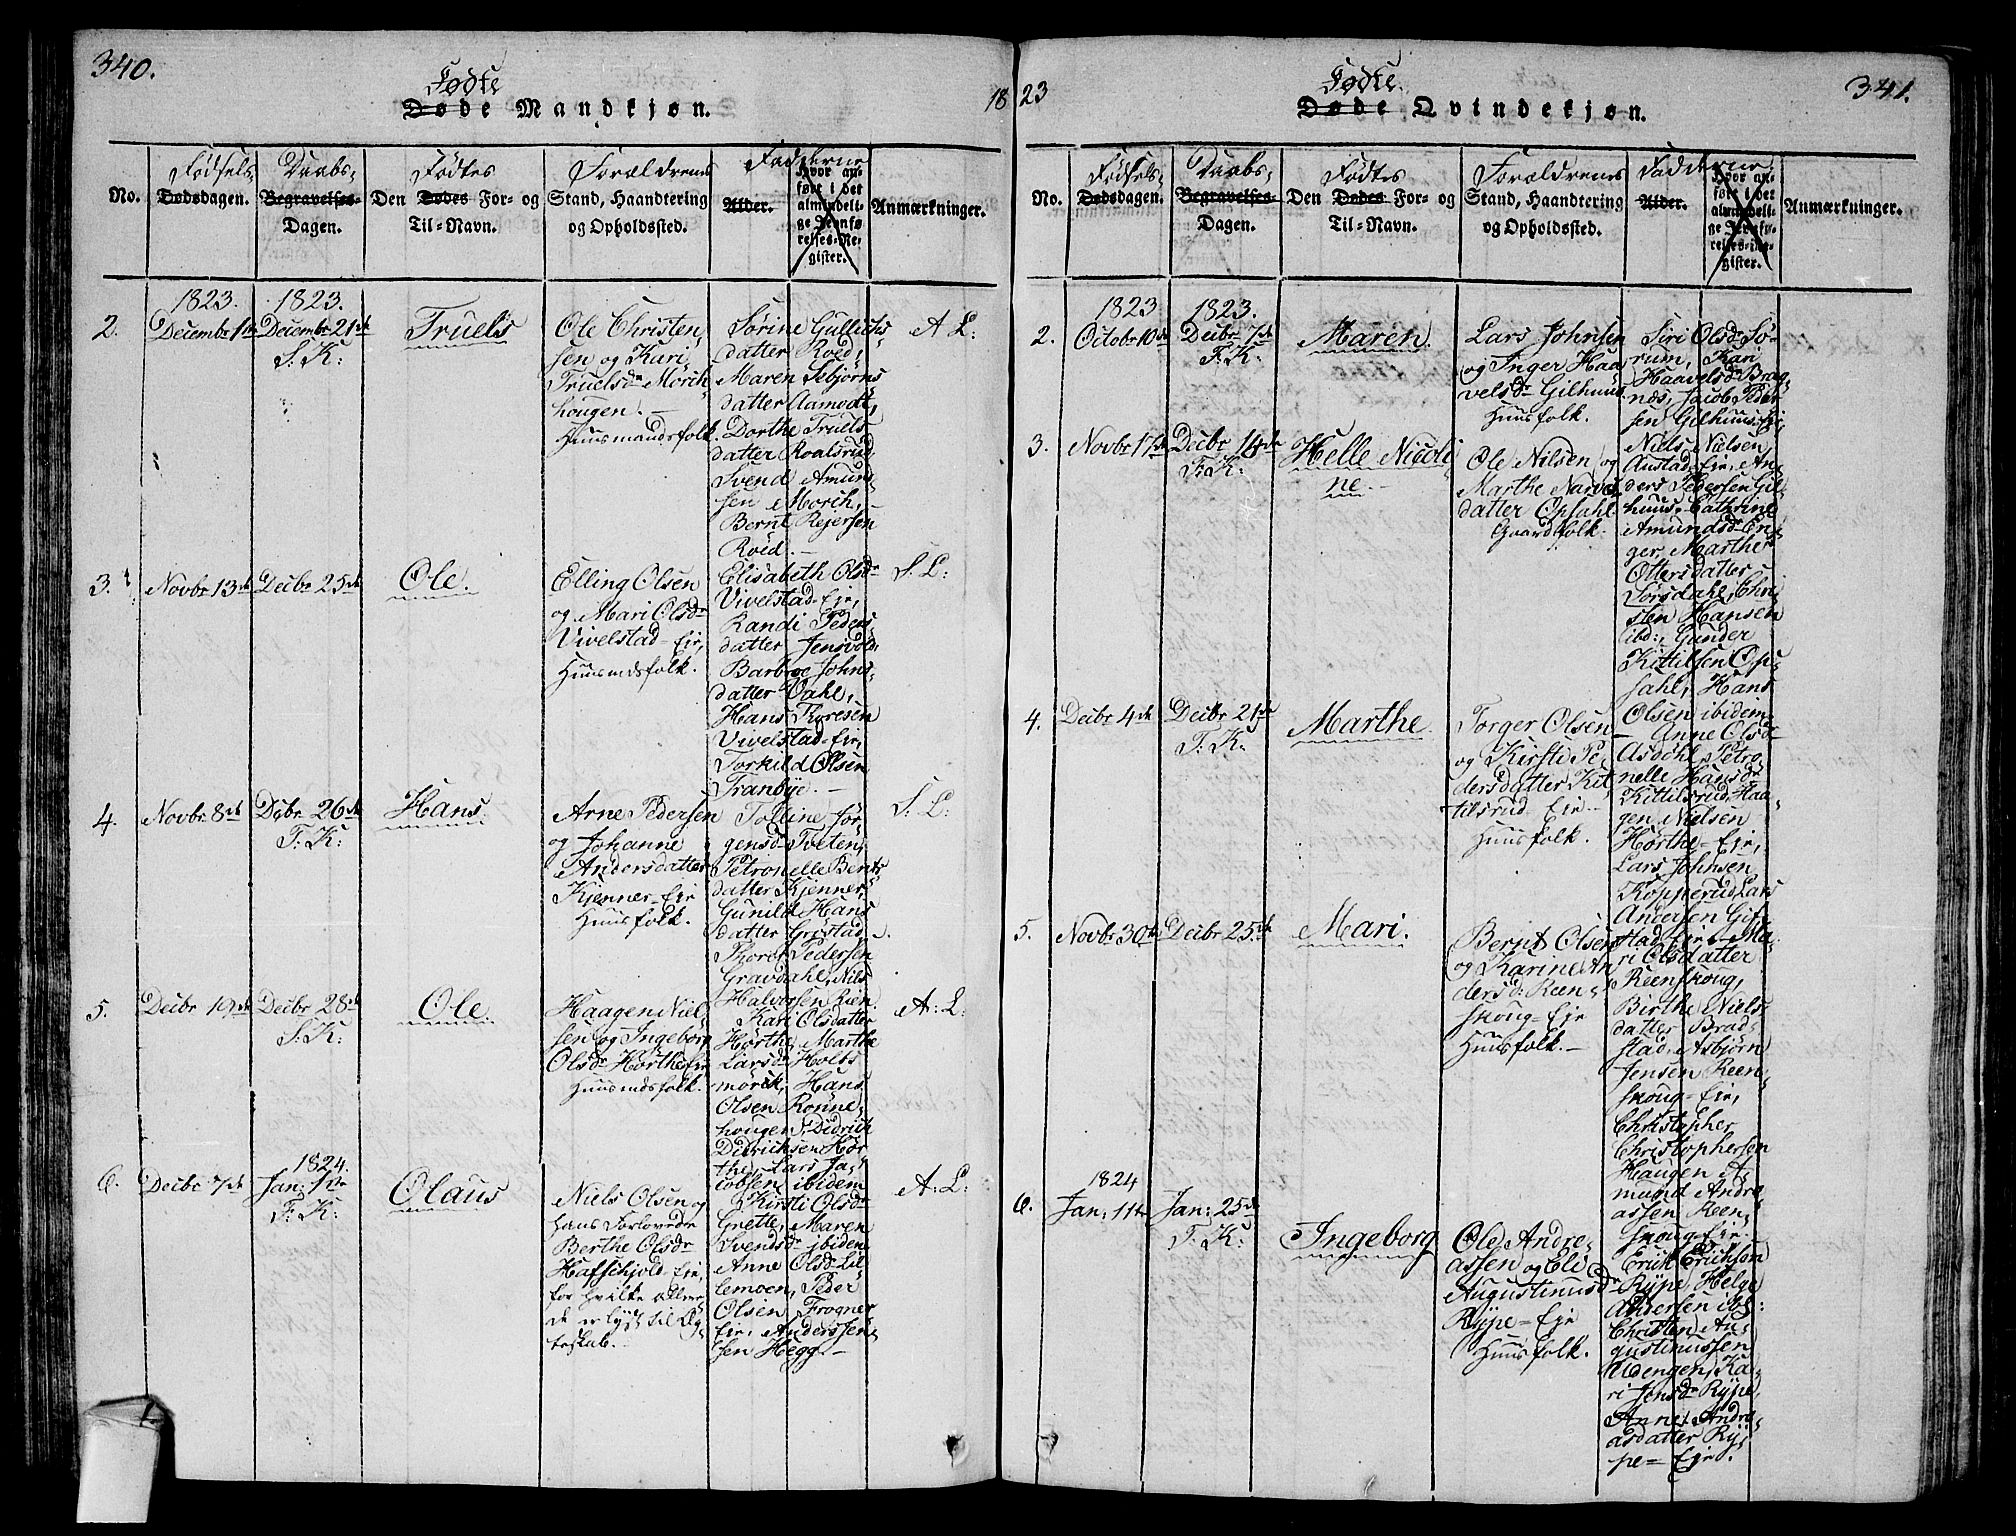 340.
Fødte
Døde Mandkjøn.
18
No.
Fødsels
Dødsdagen.
Daabs-
Begravelses-
Dagen.
Den Fødtes
Dødes For- og
Til-Navn.
Forældrenes
Stand, Haandtering
og Opholdssted.
Fadderne
Alder.
Hvor an-
ført i det
almindeli-
ge Jevnfø-
relses-Re-
gister.
Anmærkninger.
2.
1823.
Decembr 11te
1823.
Decembr 21de
S. K:
Truels
Ole Christen-
sen og Kari
Truelsdr Mørch-
hougen. —
Huusmandsfolk.
Sørine Gullichs-
datter Roed,
Maren Asbjørns-
datter Aamodt,
Dorthe Truels-
datter Roalsrud,
Svend Amund-
sen Morch,
Bernt Rejersen
Roed. —
A L:
3.
Novbr 13de
Decbr 25de
Ole.
Elling Olsen
og Mari Olsdr
Vivelstad-Eje,
Huusmdsfolk.
Elisabeth Olsdr
Vivelstad-Eje,
Randi Peders-
datter Jensvold,
Barbroe Johns-
datter Vahl,
Hans Thoresen
Vivelstad-Eje,
Torkild Olsen
Tranbye. —
S. L:
4.
Novbr 8de
Decbr 26de
F. K:
Hans.
Arne Pedersen
og Johanne
Andersdatter
Kjenner-Eje
Huusfolk.
Tolline Jør-
gensdr Tveten,
Petronelle Bernts-
datter Kjenner,
Gunild Hans-
datter Gristad,
Thorer Pedersen
Gravdahl, Niels
Halvorsen Rien.
S. L:
5.
Decbr 19de
Decbr 28de
S. K:
Ole.
Haagen Niel-
sen og Ingeborg
Olsdr Hørthe-Eje
Huusmdsfolk.
Kari Olsdatter
Hørthe, Marthe
Larsdr Holts-
mörck, Hans
Olsen Rönne-
hougen, Didrich
Didrichsen Hør-
the, Lars Ja-
cobsen ibidem
A: L:
6.
Decbr 7de
1824.
Jan: 1ste
F: K:
Olaus
Niels Olsen og
hans Forlovede
Berthe Olsdr
Hafschjold-Eje,
for hvilke allere-
de er lyst til Æg-
teskab.
Kirsti Olsdr
Grette, Maren
Svendsdr ibidem
Anne Olsdr Lil-
lemoen, Peder
Olsen Frogner
Eje, Anders
sen Hegg. —
A: L:
23
341.
Fødte
Døde Qvindekjøn.
No.
Fødsels-
Dødsdagen.
Daabs-
Begravelses-
Dagen.
Den Fødtes
Dødes For- og
Til-Navn.
Forældrenes
Stand, Haandtering
og Opholdssted.
Fadderne
Alder.
Hvor an-
ført i det
almindeli-
ge Jevnfø-
relses-Re-
gister.
Anmærkninger.
2.
1823
Octobr 10de
1823.
Decbr 7de
F. K:
Maren.
Lars Johnsen
og Inger Haa-
velsdr Gilhuus
Huusfolk.
Siri Olsdr Sø-
rum, Kari
Haavelsdr Brag-
næs, Jacob Peder-
sen Gilhuus-Eje
3.
Novbr 17de
Decbr 14de
F. K:
Helle Nicoli-
ne. —
Ole Nilsen og
Marthe Narves-
datter Opsahl
Gaardfolk.
Niels Nielsen
Austad-Eje, An-
ders Pedersen Gil-
huus, Cathrine
Amundsdr En-
ger, Marthe
Ottersdatter
Sørsdahl, Chri-
sten Hansen
ibd:, Gunder
Kittilsen Op-
sahl, Hans
Olsen ibidem
4.
Decbr 4de
Decbr 21de
F. K:
Marthe
Torger Olsen
og Kirsti Pe-
dersdatter Kit-
tilsrud-Eje
Huusfolk.
Anne Olsdr
Asdøhl, Petro-
nelle Hansdr
Kittilsrud, Haa-
gen Nielsen
Hørthe-Eje,
Lars Johnsen
Kopperud, Lars
Andersen Gif-
stad-Eje.
5.
Novbr 30te
Decbr 25de
Mari.
Bernt Olsen
og Karine An-
dersd: Reen-
skoug-Eje
Huusfolk. —
Ma-
ri Olsdatter
Reenskoug,
Birthe Niels-
datter Brad-
stad, Asbjørn
Jensen Reen-
skoug-Eje,
Christopher
Christophersen
Haugen A-
mund Andre-
assen Reen-
skoug-Eje.
6.
1824
Jan: 11te
Jan: 25de
F. K:
Ingeborg
Ole Andre-
assen og Eli
Augustinusdr
Rype-Eje
Huusfolk.
Erick Erichsen
Rype, Helge
Andersen ibd:
Christen Au-
gustinussen
Udengen, Ka-
ri Jonsdr Rype,
Anne Andre-
asdatter Ry-
pe-Eje.